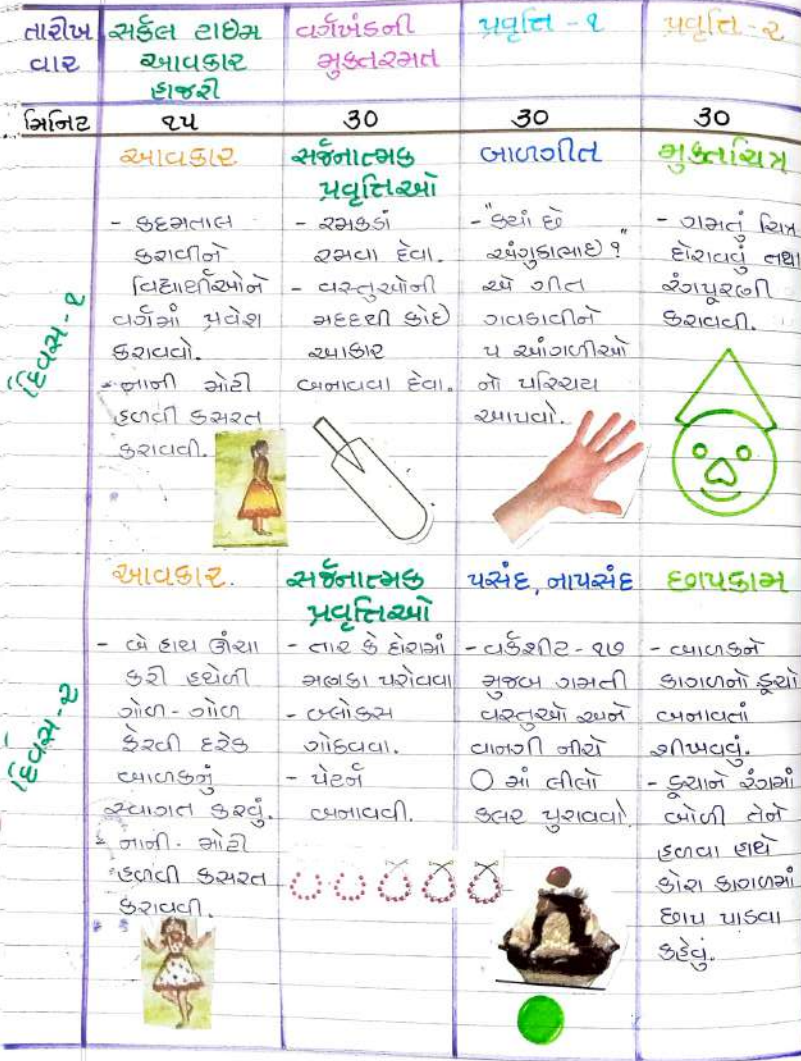 તારીખ
વાર
સર્કલ ટાઈમ
આવકાર
હાજરી
વર્ગખંડની
મુક્તરમત
પ્રવૃત્તિ - ૧
પ્રવૃત્તિ - ૨
મિનિટ
૧૫
30
30
30
દિવસ - ૧
આવકાર
- કદમતાલ
કરાવીને
વિદ્યાર્થીઓને
વર્ગમાં પ્રવેશ
કરાવવો.
- નાની મોટી
હળવી કસરત
કરાવવી.
સર્જનાત્મક
પ્રવૃત્તિઓ
- રમકડાં
રમવા દેવા.
- વસ્તુઓની
મદદથી કોઈ
આકાર
બનાવવા દેવા.
બાળગીત
- "ક્યાં છે
અંગુકાભાઈ ?"
એ ગીત
ગવડાવીને
૫ આંગળીઓ
નો પરિચય
આપવો.
મુક્તચિત્ર
- ગમતું ચિત્ર
દોરાવવું તથા
રંગપૂરણી
કરાવવી.
દિવસ - ૨
આવકાર.
- બે હાથ ઊંચા
કરી હથેળી
ગોળ - ગોળ
ફેરવી દરેક
બાળકનું
સ્વાગત કરવું.
- નાની - મોટી
હળવી કસરત
કરાવવી.
સર્જનાત્મક
પ્રવૃત્તિઓ
- તાર કે દોરામાં
મણકા પરોવવા
- બ્લોકસ
ગોઠવવા.
- પેટર્ન
બનાવવી.
પસંદ, નાપસંદ
- વર્કશીટ - ૧૭
મુજબ ગમતી
વસ્તુઓ અને
વાનગી નીચે
○ માં લીલો
કલર પુરાવવો.
છાપકામ
- બાળકને
કાગળનો ડૂચો
બનાવતાં
શીખવવું.
- ડૂચાને રંગમાં
બોળી તેને
હળવા હાથે
કોરા કાગળમાં
છાપ પાડવા
કહેવું.